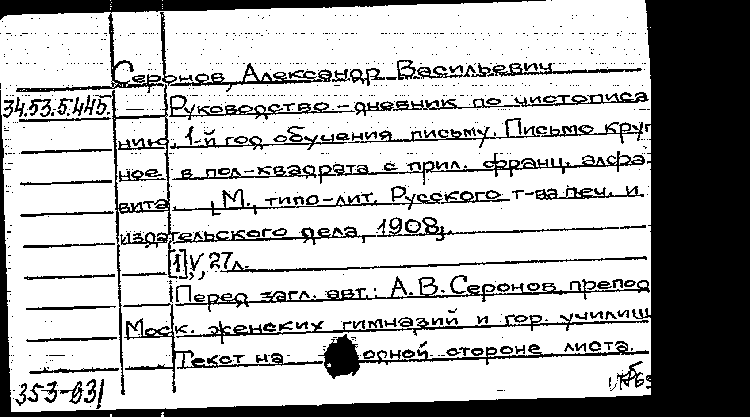 Серонов, Александр Васильевич
34.53.5.445. — Руководство-дневник по чистописа
нию. 1-й год обучения письму. Письмо круг
ное в пол-квадрата с прил. франц. алфа-
вита. [М., типо-лит. Русского т-ва печ. и
издательского дела, 1908].
[1], V, 27 л.
Перед загл. авт.: А. В. Серонов, препод
Моск. женских гимназий и гор. училищ
Текст на одной стороне листа.
353-031